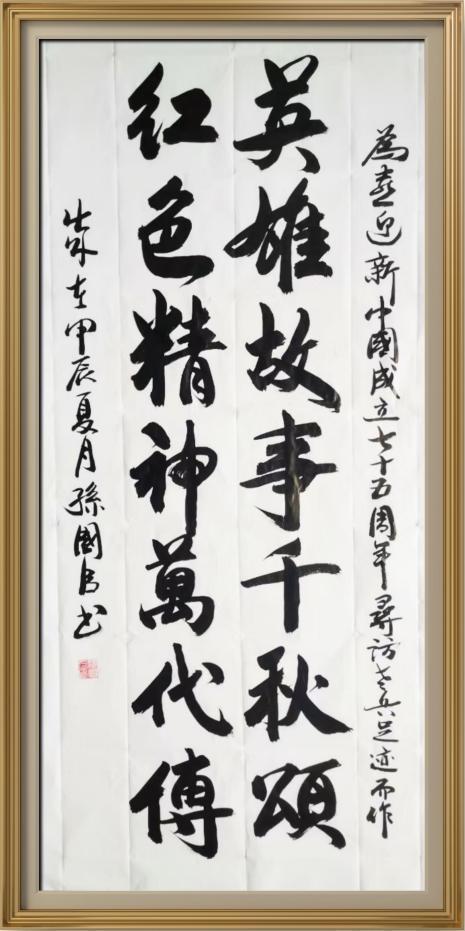 為喜迎新中國成立七十五周年尋訪老兵足迹而作
英雄故事千秋頌
红色精神萬代傳
歲在甲辰夏月孫國書